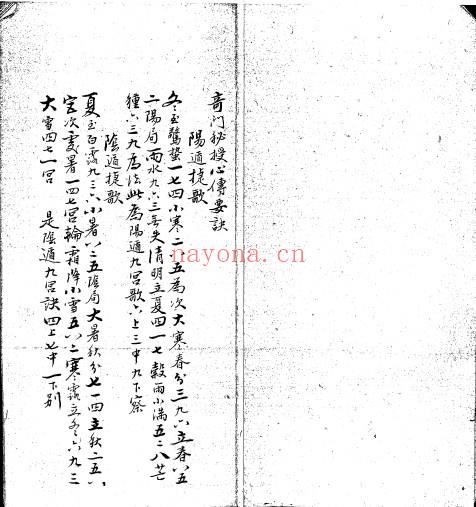 奇门秘授心傳要訣
陽遁捷歌
冬至驚蟄一七四小寒二八五為次大寒春分三九六立春八五
二陽局雨水九六三無失清明立夏四一七穀雨小滿五二八芒
種六三九為法此為陽遁九宮歌六上三中九下察
陰遁捷歌
夏至白露九三六小暑八二五陰局大暑秋分七一四立秋二五八
宮次處暑一四七宮輪霜降小雪五八二寒露立冬六九三
大雪四七一宮 是陰遁九宮訣四上七中一下別
nayona.cn